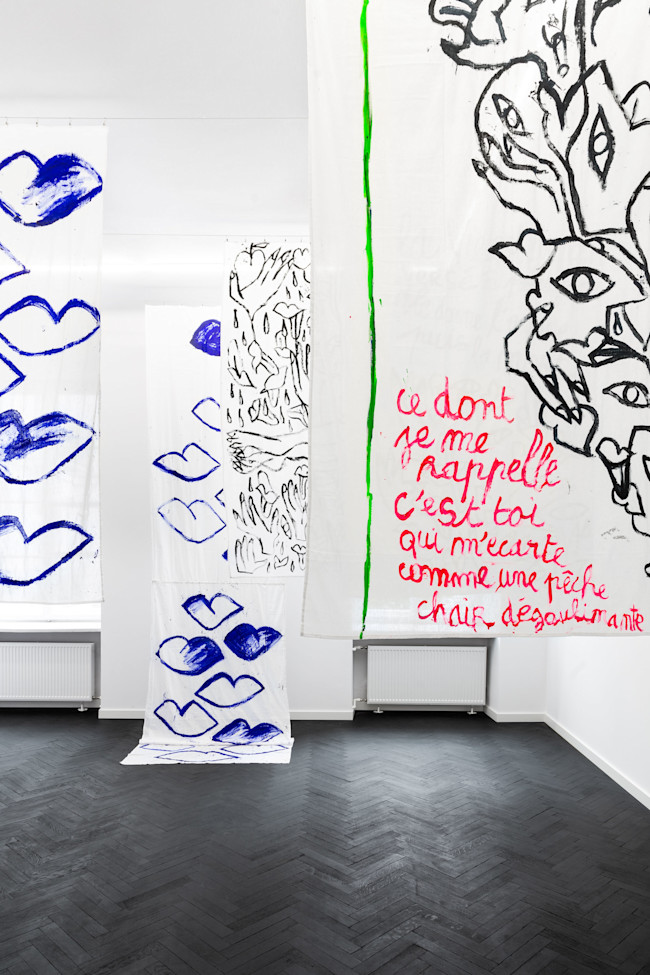 ce dont
je me
rappelle
c'est toi
qui m'écarte
comme une pêche
chair dégoulinante